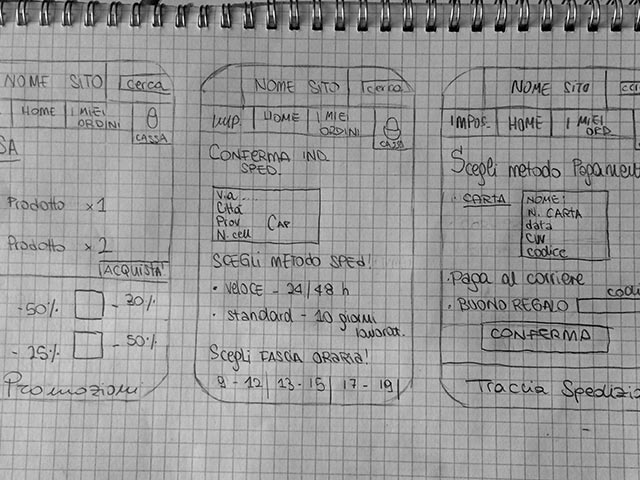 NOME SITO cerca
HOME I MIEI ORDINI CASSA
SA
Prodotto x1
Prodotto x2
ACQUISTA
-50% -30%
-25% -50%
Promozioni
NOME SITO cerca
IMP. HOME I MIEI ORDINI CASSA
CONFERMA IND.
SPED.
Via ....
Città
Prov CAP
N. cell
SCEGLI METODO SPED!
• VELOCE - 24/48 h
• standard - 10 giorni
lavorat.
Scegli FASCIA ORARIA!
9-12 | 13-15 | 17-19
NOME SITO
IMPOS. HOME I MIEI ORD.
Scegli metodo Pagament
• CARTA
NOME:
N. CARTA
data
CVV
codice
• Paga al corriere
codi
• BUONO REGALO
CONFERMA
Traccia Spedizio